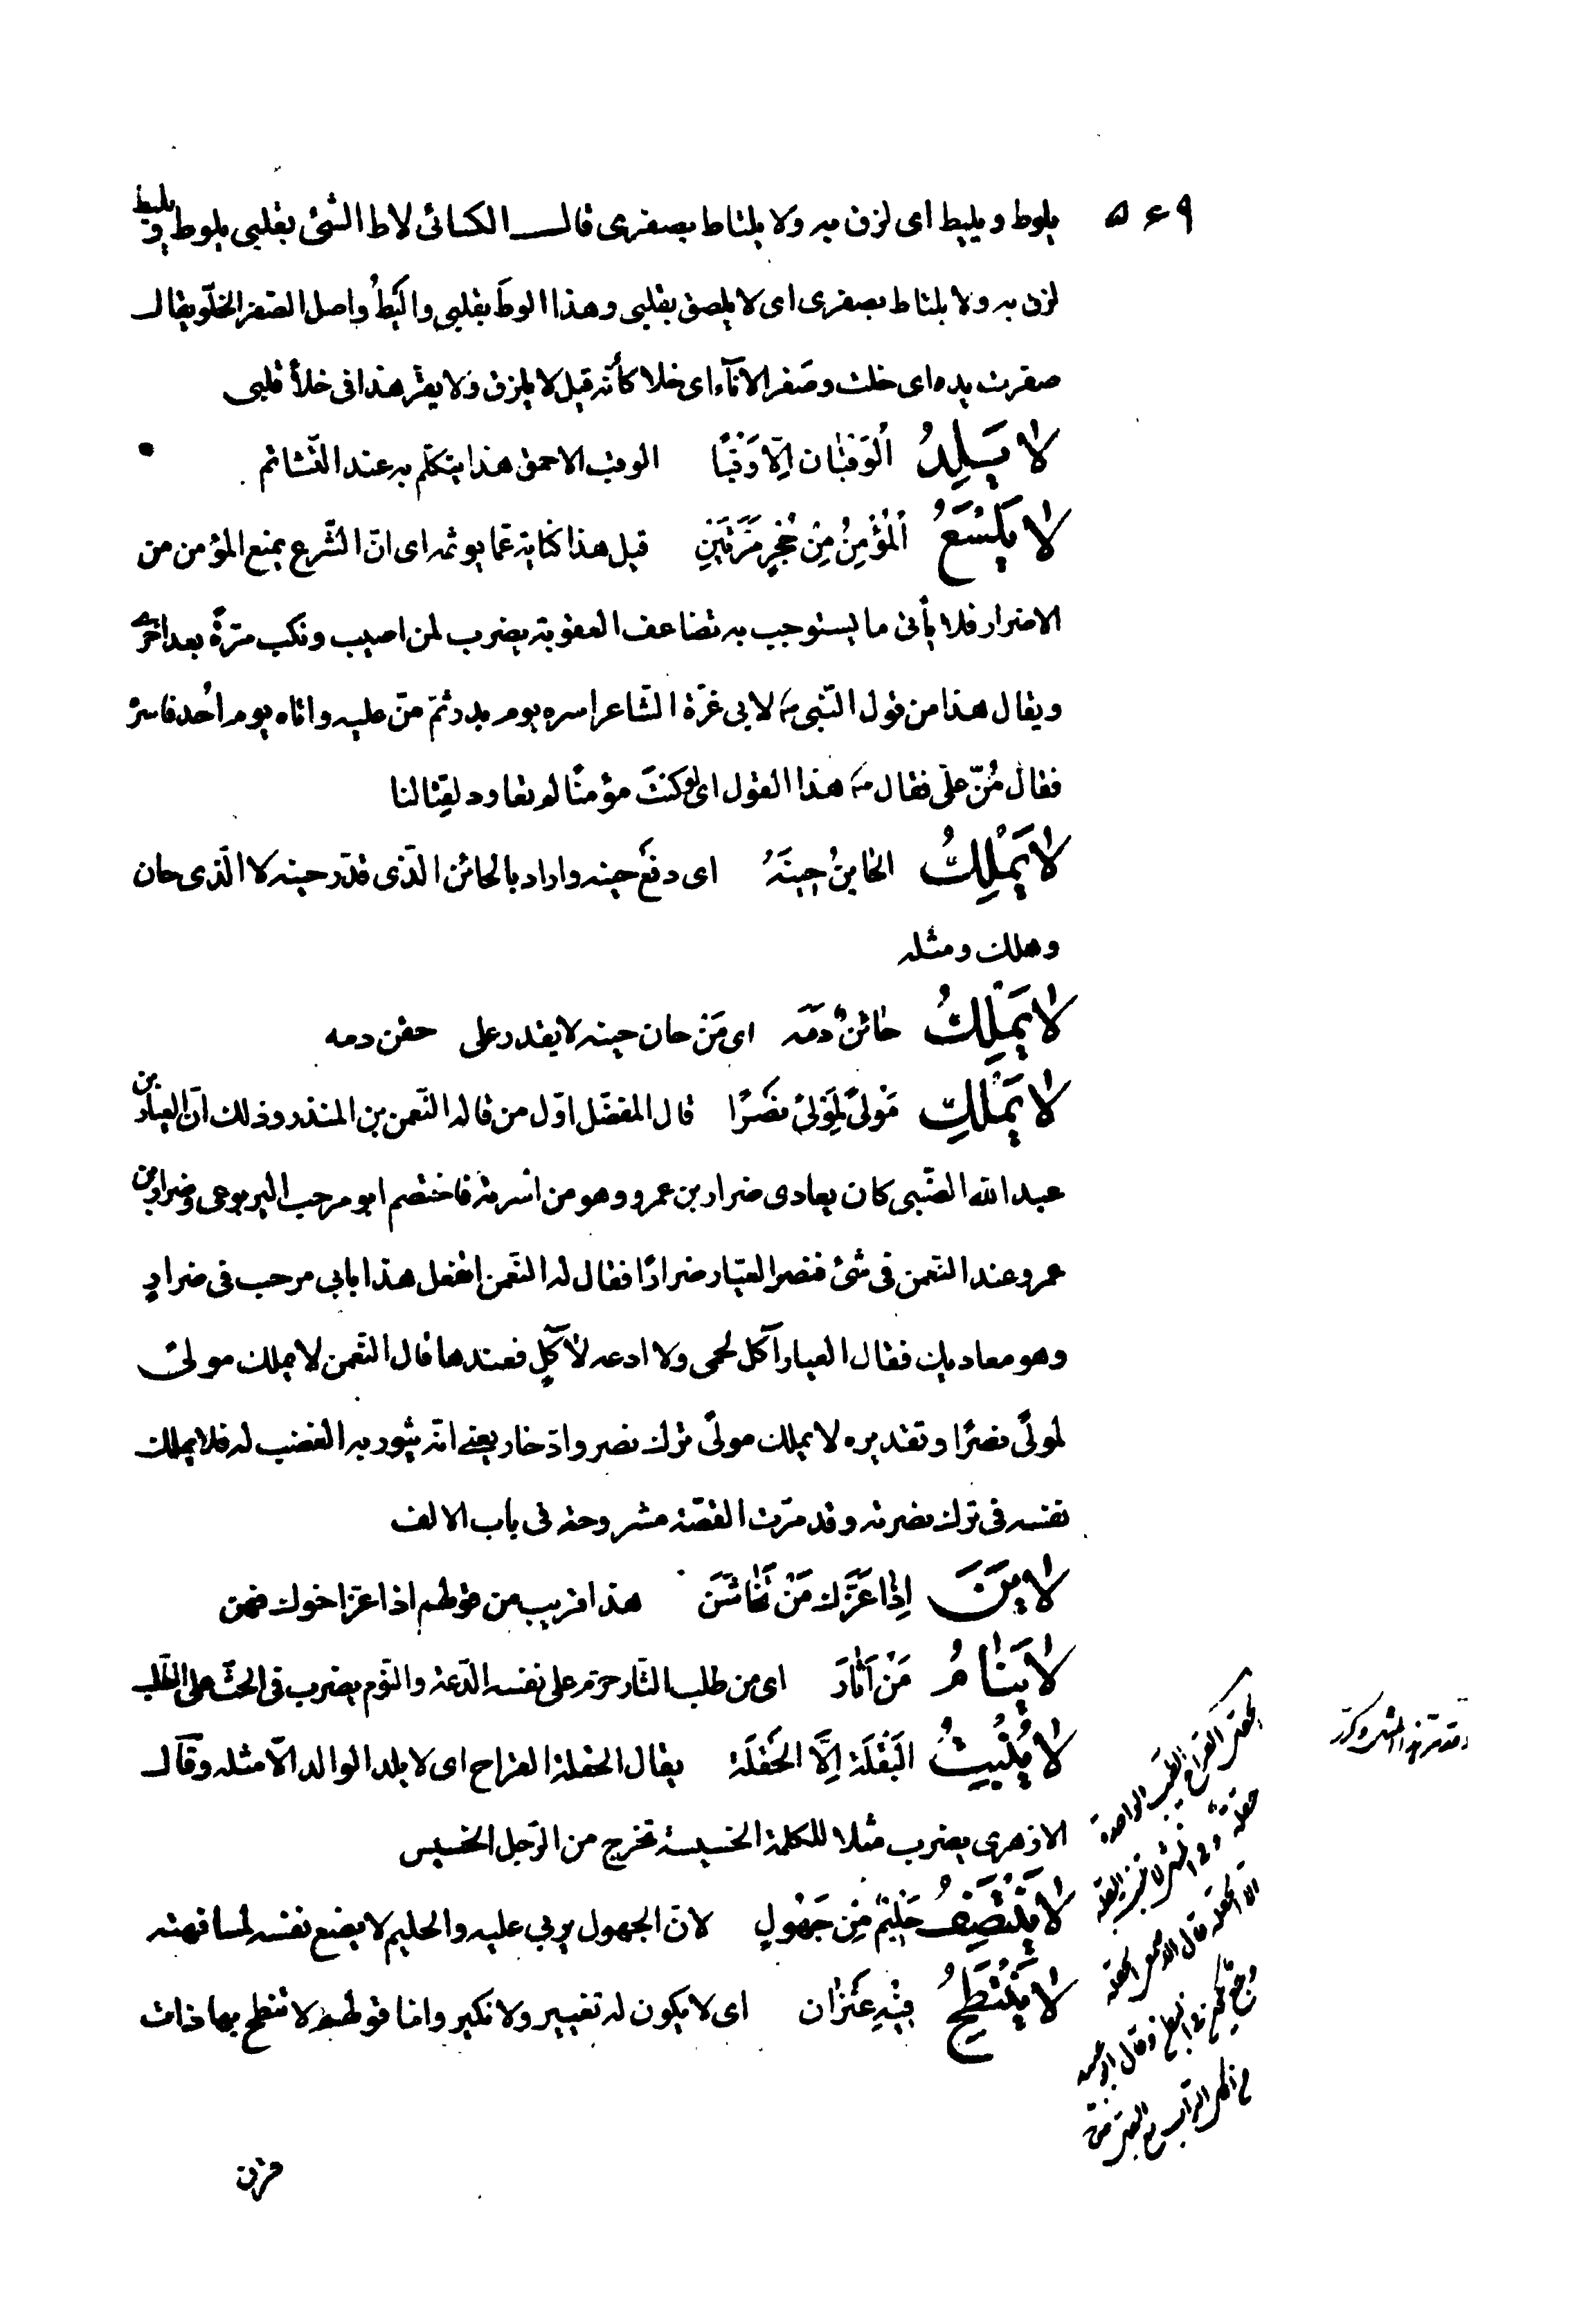 ۵۶۹
يلوط و يليط اى لزق به ولا يلتاط بصفرى قال الكسائى لاط الشئ بقلبى يلوط و يليط
لزق به ولا يلتاط بصفرى اى لا يلصق بقلبى وهذا الوط بقلبى واليط واصل الصفر الخلو يقال
صفرت يده اى خلت وصفر الانآء اى خلا كأنه قيل لا يلزق ولا يقر هذا فى خلأ قلبى
لا يَلِدُ اَلْوَقْبٰان اِلّا وَقْبًا الوقب الاحمق هذا يتكلم به عند التّشاتم
لا يُلْسَعُ اَلْمُؤْمِنُ مِنْ جُحْرٍ مَرَّتَيْنِ قيل هذا كناية عمّا يوثمه اى انّ الشّرع يمنع المؤمن من
الاضرار فلا يأتى ما يستوجب به تضاعف العقوبة يضرب لمن اصيب ونكب مرّةً بعد اخرى
ويقال هذا من قول النّبى ص لابى عزّة الشّاعر اسره يوم بدر ثمّ منّ عليه واتاه يوم اُحد فاسره
فقال مُنّ علىّ فقال ص هذا القول اى لوكنتَ مؤمنًا لم تعاود لقتالنا
لا يَمْلِكُ الحٰاينُ حِينَهُ اى دفعَ حينه واراد بالحائن الّذى قدّر حينه لا الّذى حان
وهلك ومثله
لا يَمْلِكُ حٰائنٌ دَمَه اى مَنْ حان حينه لا يقدر على حقن دمه
لا يَمْلِكُ مَوْلىً لِمَوْلىً نَصْرًا قال المفضّل اوّل من قاله النّعمن بن المنذر وذلك انّ العيار بن
عبد الله الضّبى كان يعادى ضرار بن عمرو وهو من اسرته فاختصم ابو مرحب اليربوعى وضرار بن
عمرو عند النعمن فى شئ فنصر العيّار ضرارًا فقال له النّعمن اتفعل هذا بابى مرحب فى ضرارٍ
وهو معاديك فقال العيار آكل لحمى ولا ادعه لآكلٍ فعندها قال النّعمن لا يملك مولىً
لمولًى نصرًا وتقديره لا يملك مولًى ترك نصر وادّخار يعنى انّه يثور به الغضب له فلا يملك
نفسه فى ترك نصرته وقد مرّت القصّة مشروحة فى باب الالف
لا يَنْ اِذٰا عَزَّكَ مَنْ تُخٰاشَنَ هذا قريب من قولهم اذا عزّ اخوك فهن
لا يَنٰامُ مَنْ اَثْأَرَ اى من طلب الثّار حرّم على نفسه الدّعة والنّوم يضرب فى الحثّ على الطّلب
لا يُنْبِتُ البَقْلَةَ اِلَّا الحَقْلَة يقال الحقلة القراح اى لا يلد الوالد الّا مثله وقال
الازهرى يضرب مثلا للكلمة الخسيسة تخرج من الرّجل الخسيس
لا يَنْتَصِفُ حَلِيْمٌ مِنْ جَهُولٍ لانّ الجهول يربى عليه والحليم لا يضع نفسه لمسافهته
لا يَنْتَطِحُ فِيْهِ عَنْزٰان اى لا يكون له تغيير ولا نكير وامّا قولهم لا تنطح بها ذات
قرن
الحقل القراح الطيب الواحدة
حقلة وفى المثل لا تنبت البقلة
الا الحقلة